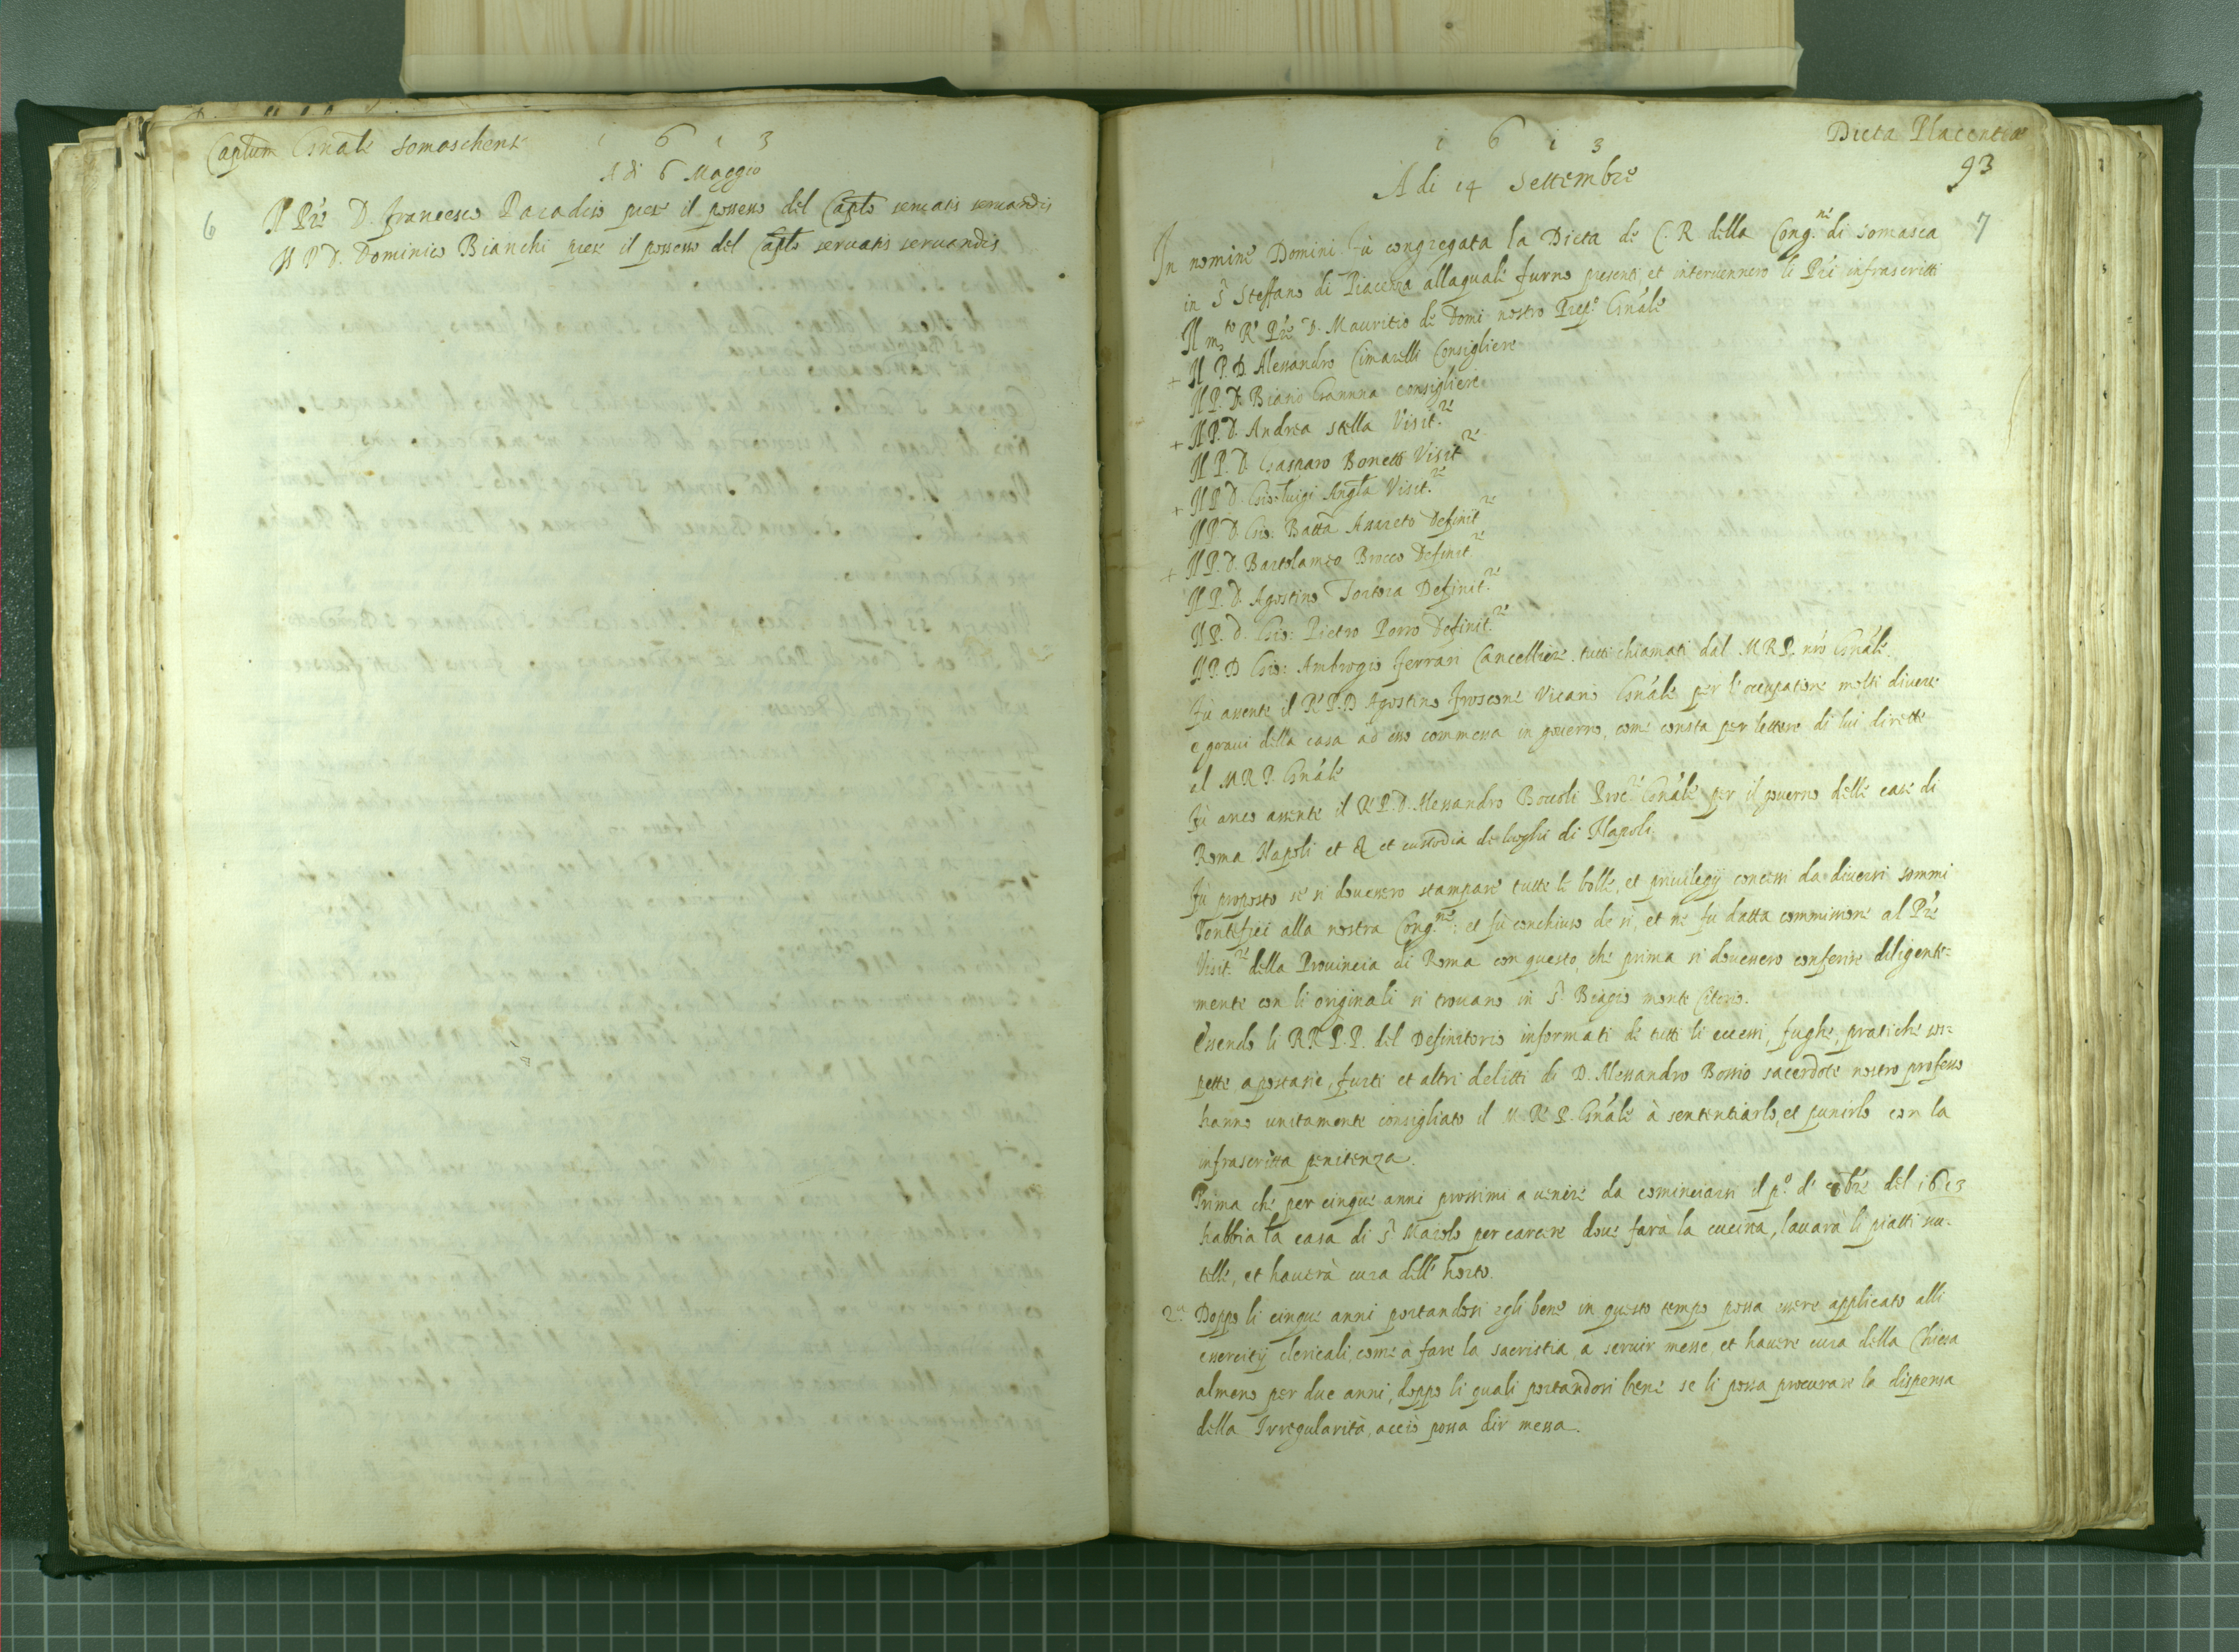 Captum Gnale Somaschens
1 6 1 3
A di 6 Maggio
6
Il Pre D. Francesco Paradiso prese il possesso del Caplo servatis servandis
Il P. D. Dominico Bianchi prese il possesso del Caplo servatis servandis
1 6 1 3
Dieta Placentiæ
93
A di 14 Settembre
7
In nomine Domini fù congregata la Dieta de C. R. della Cong.ne di Somasca
in S. Steffano di Piacenza allaquale furno presenti, et intervennero li Pri infrascritti
Il m.to R. Pre D. Mauritio de Domi nostro Prep.o Gnale
+ Il P. D. Alessandro Cimarelli Consigliere
Il P. D. Biasio Ganna Consigliere
+ Il P. D. Andrea Stella Visit.re
Il P. D. Gasparo Bonetti Visit.re
+ Il P. D. Gio: Luigi Visit.re
Il P. D. Gio: Batta Assareto Definit.re
+ Il P. D. Bartolameo Brocco Definit.re
Il P. D. Agostino Tortora Definit.re
Il P. D. Gio: Pietro Porro Definit.re
Il P. D. Gio: Ambrogio Ferrari Cancelliere. tutti chiamati dal M.R.P. nro Gnale.
Fù assente il R. P. D. Agostino Froscone Vicario Gnale per l'occupatione molti diverse
e gravi della casa ad esso commessa in governo, come consta per lettere di lui dirette
al M. R. P. Gnale
Fù anco assente il R. P. D. Alessandro Boccoli Proc.re Gnale per il governo delle case di
Roma Napoli et et custodia de luoghi di Napoli.
Fù proposto se si dovessero stampare tutte le bolle, et privilegij concessi da diversi sommi
Pontefici alla nostra Cong.ne: et fù conchiuso de si, et ne fu datta commissione al Pre
Visit.re della Provincia di Roma con questo, che prima si dovessero conferire diligente=
mente con li originali si trovano in S. Biagio monte Citorio.
Essendo li RR. P. P. del Definitorio informati de tutti li eccessi, fughe, pratiche sos=
pette apostasie, furti et altri delitti di D. Alessandro Bossio sacerdote nostro professo
hanno unitamente consigliato il M. R. P. Gnale à sententiarlo, et punirlo con la
infrascritta penitenza.
Prima che per cinque anni prossimi a venire da cominciarsi il p.o de 8bre del 1613
habbia la casa di S. Maiolo per carcere dove farà la cucina, lavarà li piatti scu=
telle, et haverà cura dell'horto.
2.a Doppo li cinque anni portandosi egli bene in questo tempo possa essere applicato alli
essercitij clericali, come à fare la sacristia a servir messe, et havere cura della Chiesa
almeno per due anni, doppo li quali portandosi bene se li possa procurare la dispensa
della Irregularità, acciò possa dir messa.